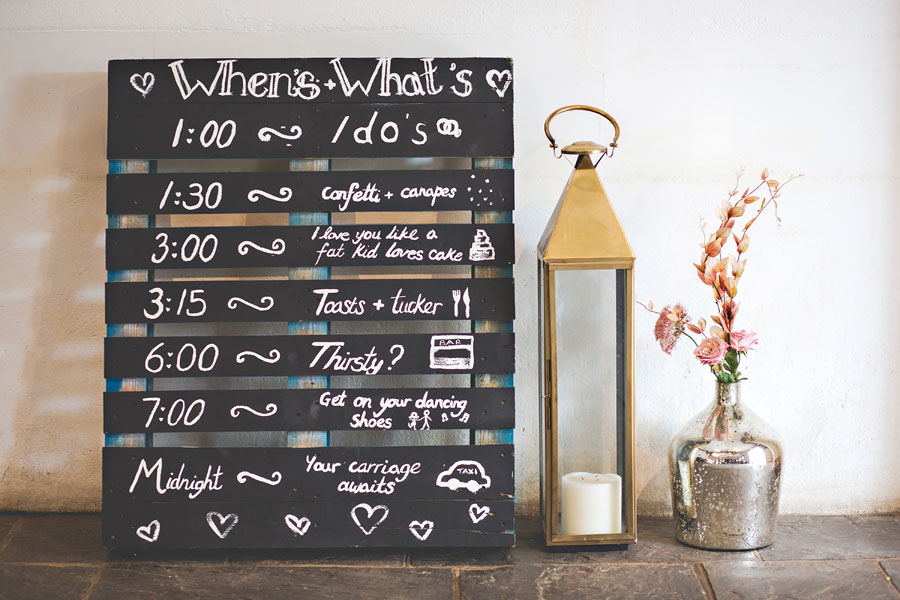 When's + What's
1:00 I do's
1:30 confetti + canapes
3:00 I love you like a
fat kid loves cake
3:15 Toasts + tucker
6:00 Thirsty? BAR
7:00 Get on your dancing
shoes
Midnight Your carriage
awaits TAXI